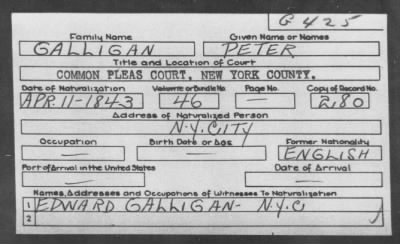 G 425
Family Name Given Name or Names
GALLIGAN PETER
Title and Location of Court
COMMON PLEAS COURT, NEW YORK COUNTY.
Date of Naturalization Volume or Bundle No. Page No. Copy of Record No.
APR. 11-1843 46 — 280
Address of Naturalized Person
N.Y. CITY
Occupation Birth Date or Age Former Nationality
— — ENGLISH
Port of Arrival in the United States Date of Arrival
— —
Names, Addresses and Occupations of Witnesses To Naturalization
1 EDWARD GALLIGAN- N.Y.C
2